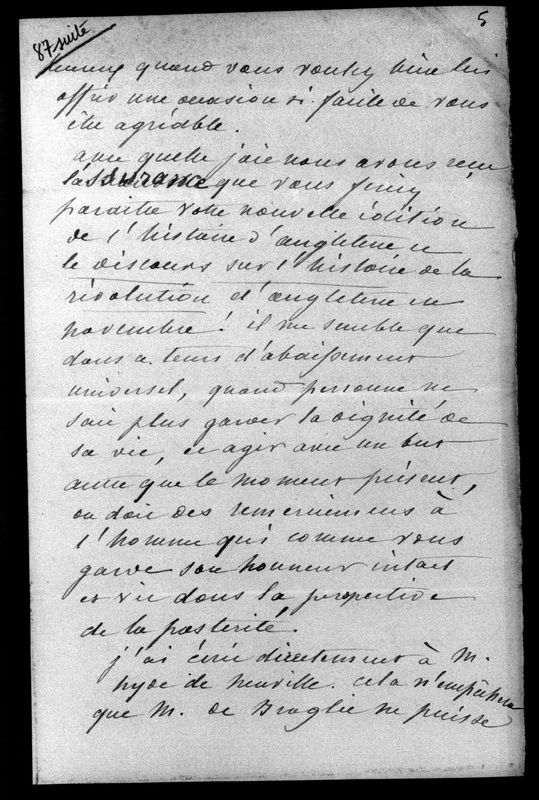 87 suite
5
quand vous voulez bien lui
offrir une occasion si facile de vous
être agréable.
avec quelle joie nous avons reçu
l'assurance que vous ferez
paraitre votre nouvelle édition
de l'histoire d'angleterre et
le discours sur l'histoire de la
révolution d'angleterre en
novembre! il me semble que
dans ce tems d'abaissement
universel, quand personne ne
sait plus garder la dignité de
sa vie, et agir avec un but
autre que le moment présent,
on doit des remerciemens à
l'homme qui comme vous
garde son honneur intact
et vit dans la perspective
de la postérité.
j'ai écrit directement à M.
hyde de neuville. cela n'empêchera
que M. de Broglie ne puisse